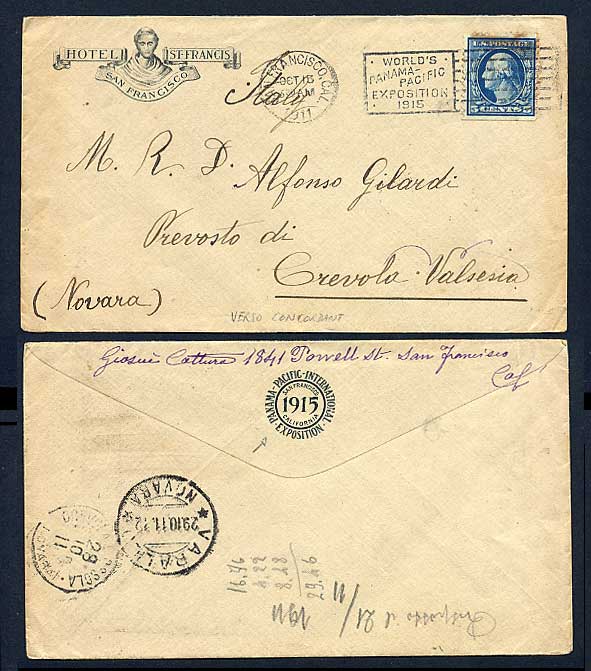 HOTEL ST. FRANCIS
SAN FRANCISCO
FRANCISCO, CAL.
OCT 15
AM
1911
WORLD'S
PANAMA-
PACIFIC
EXPOSITION
1915
U.S. POSTAGE
5 CENTS 5
Italy
M. R. D. Alfonso Gilardi
Prevosto di
Crevola-Valsesia
(Novara)
VERSO CONCORDANT
Giosuè Cattura 1841 Powell St. San Francisco
Cal
PANAMA-PACIFIC-INTERNATIONAL
SAN FRANCISCO
1915
CALIFORNIA
EXPOSITION
NOVARA
29.10.11.12
VARALLO
28
10
11
16.76
4.22
8.28
29.46
Risposto il 21/11
1911